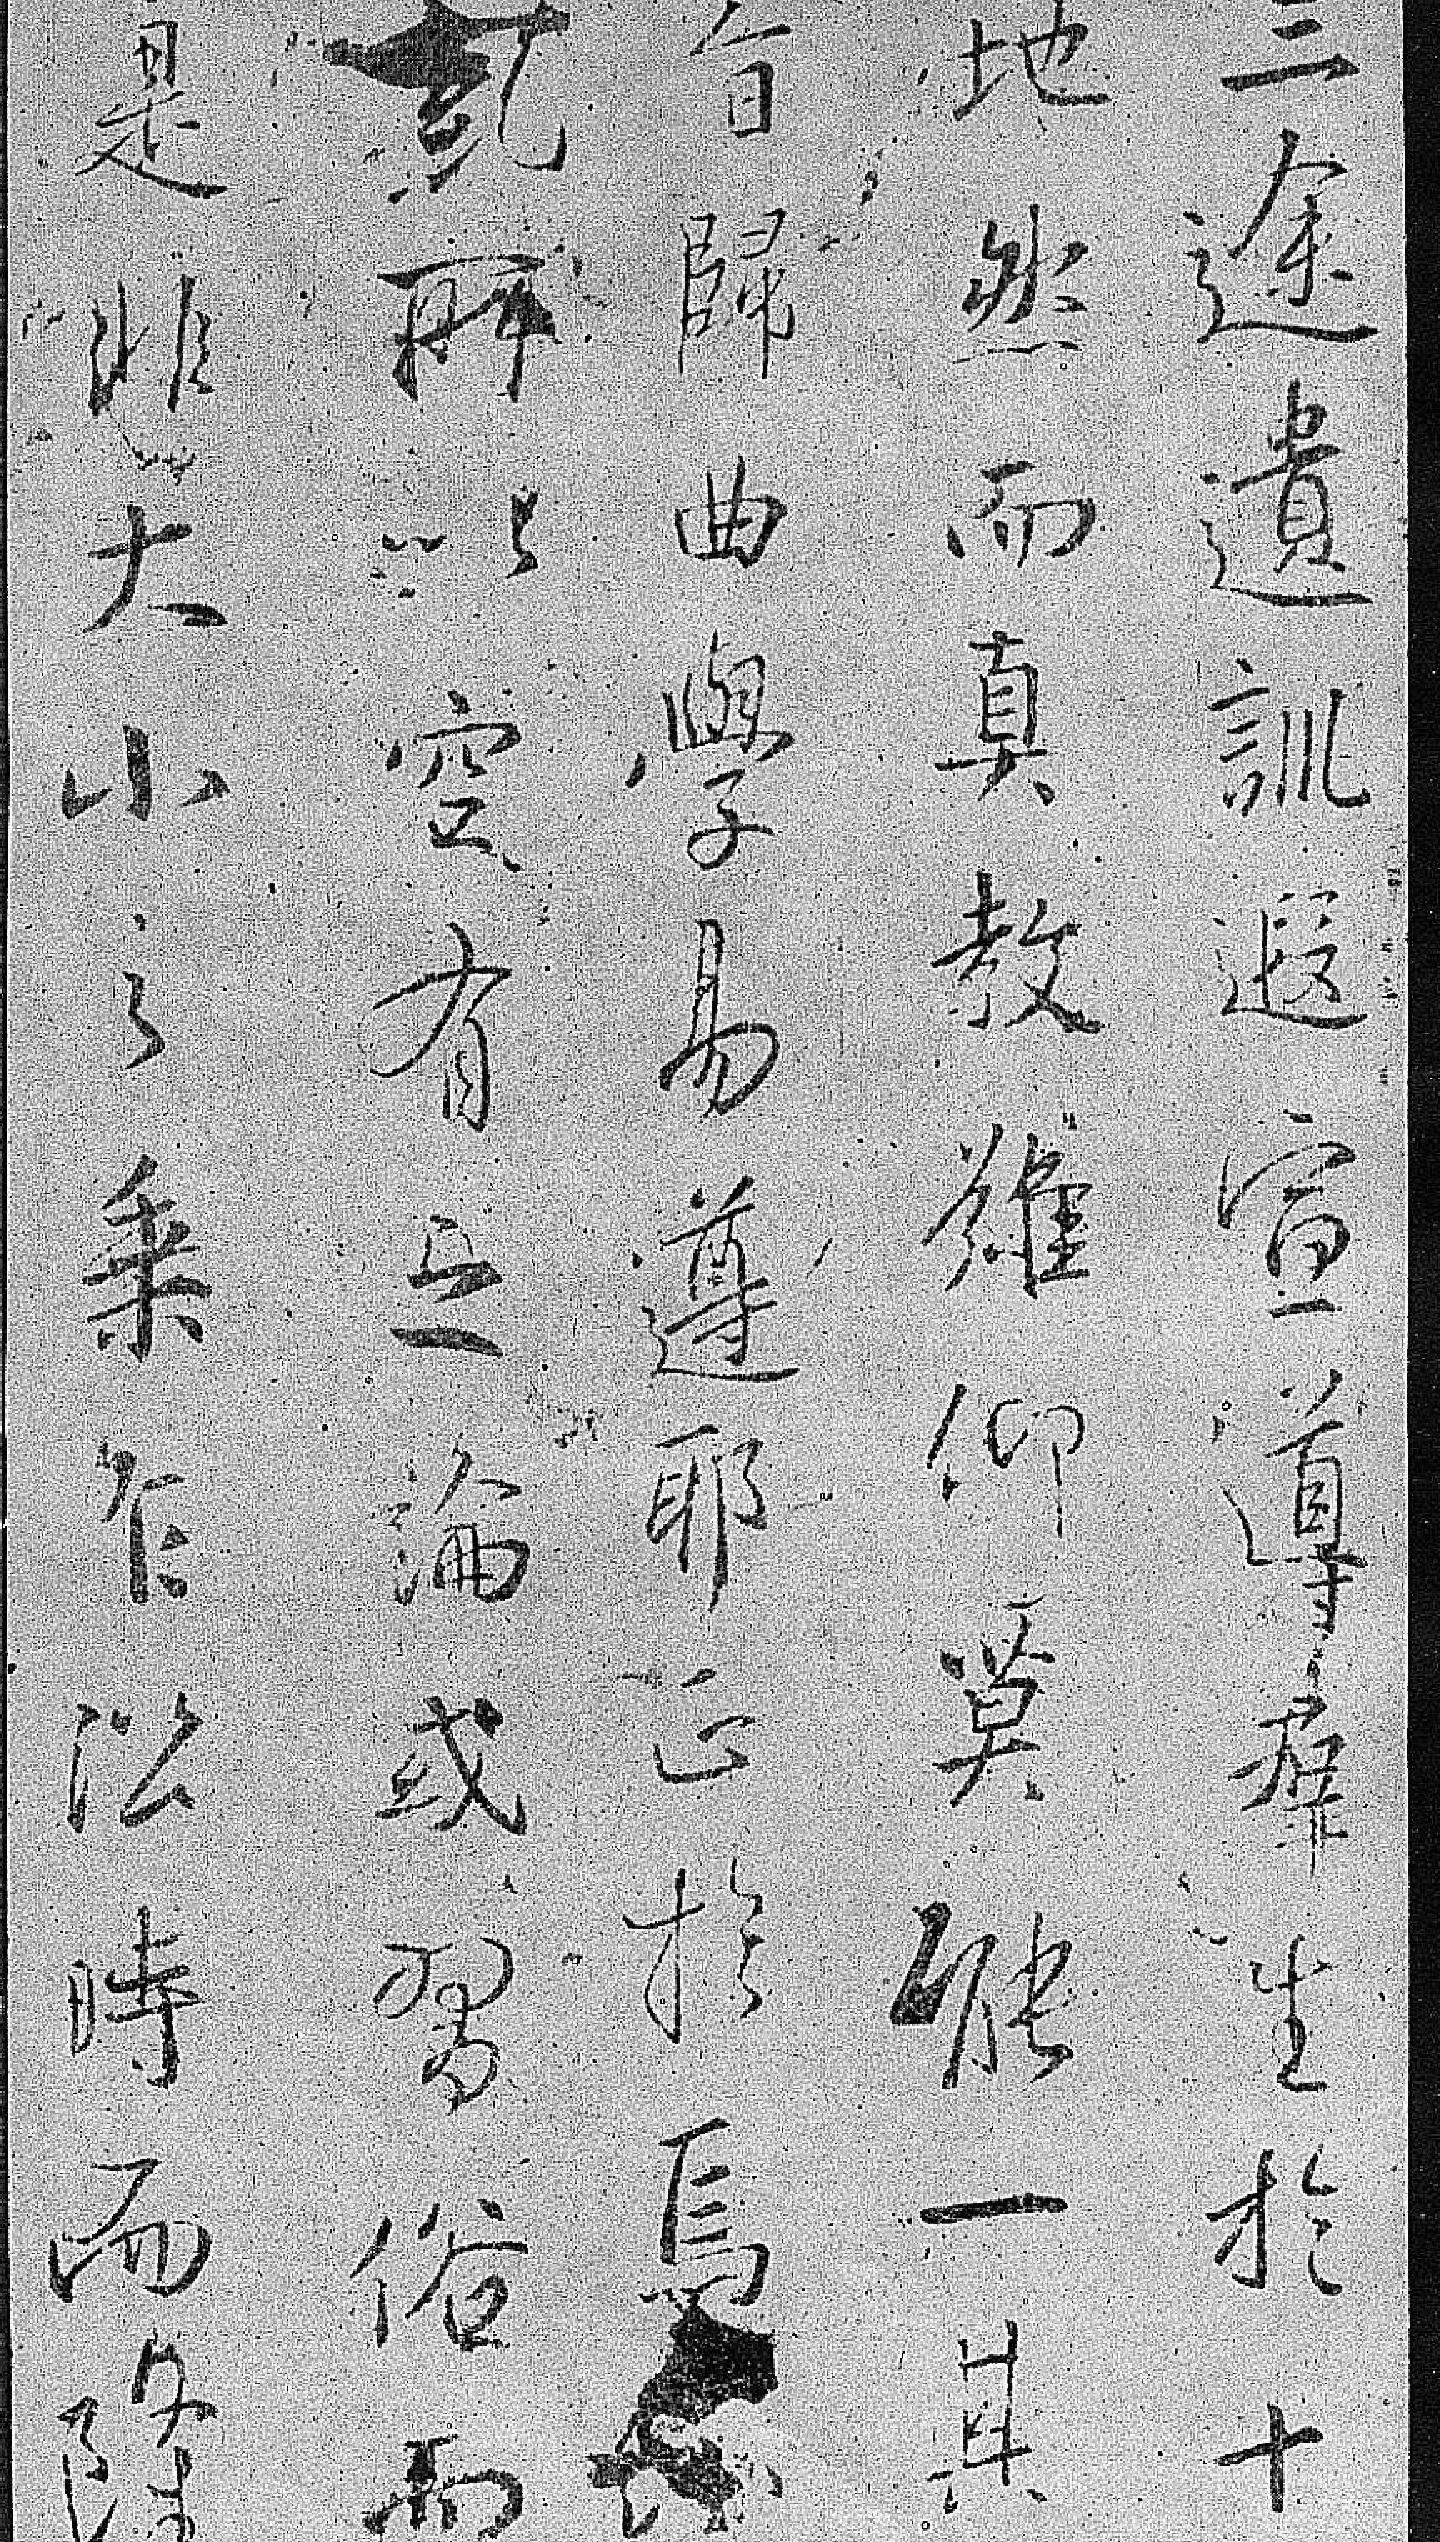 三途遺訓遐宣導羣生於十
地然而真教難仰莫能一其
旨歸曲學易遵耶正於焉
糺所以空有之論或習俗而
是非大小之乘乍沿時而隆